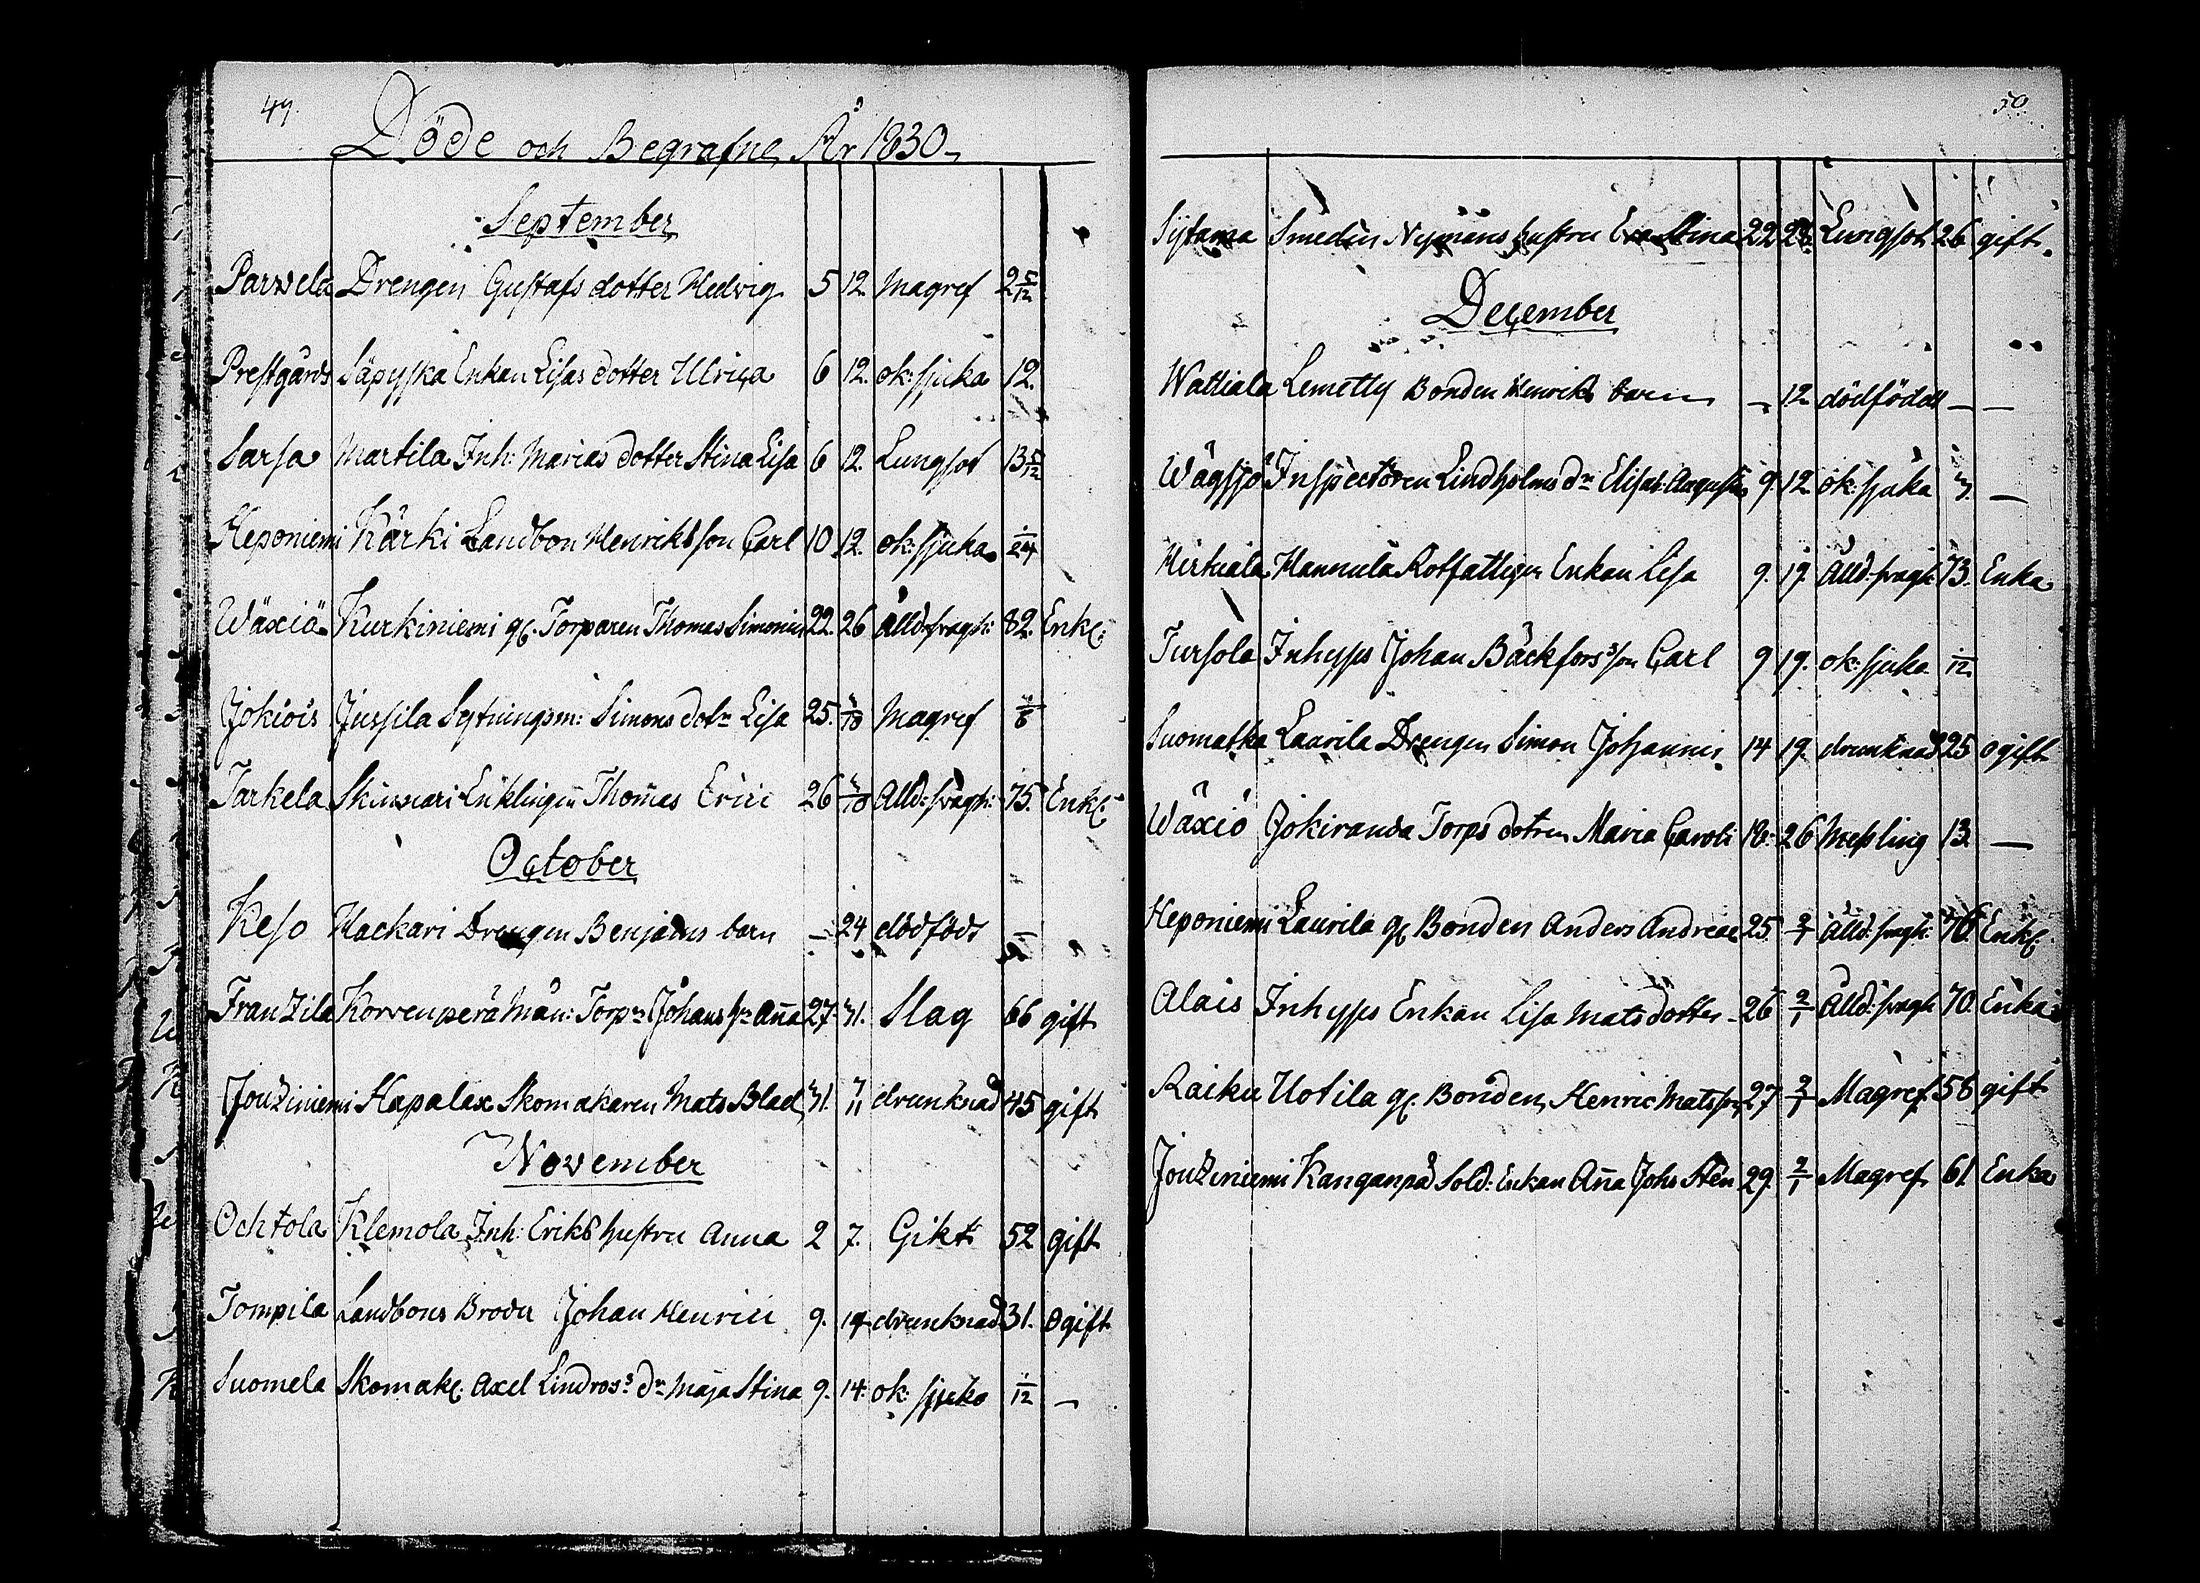 49.
Döde och Begrafne År 1830
September
Parvela Drengen Gustafs dotter Hedvig 5 12. Magref 2 5/12
Prestgårds Säpyska Enkan Lisas dotter Ulrica 6 12. ok: sjuka 12.
Sarsa Martila Inh: Marias dotter Stina Lisa 6 12. Lungsot 13 5/12
Heponiemi Kärki Landbon Henriks son Carl 10 12. ok: sjuka 1/24
Wäxiö Kurkiniemi gl. Torparen Thomas Simonis 22. 26 Ålld: svagh: 82. Enkl:
Jokiois Jussila Sytningsm: Simons dotr Lisa 25. 3/10 Magref
Tarkela Skinnari Enklingen Thomas Erici 26 3/10 Ålld: svagh: 75. Enkl:
October
Keso Mackari Drengen Benjamins barn — 24 dödföds —
Franzila Korvenperä Mån: Torpn Johans hr Anna 27. 31. Slag 66 gift
Jouziniemi Hapalax Skomakaren Mats Blad 31. 7/11 drunknad 45 gift
November
Ochtola Klemola Inh: Eriks hustru Anna 2 7. Gikt 52 gift
Tompila Landbons Broder Johan Henrici 9. 14 drunknad 31. Ogift
Suomela Skomak: Axel Lindros's dr Maja Stina 9. 14. ok sjuka 1/12 —
50.
Sÿtama Smeden Nymans hustru Eva Stina 22 28. Lungsot 26 gift.
December
Wattiala Lemetty Bonden Henriks barn — 12 dödfödd — —
Wägsjö Inspectoren Lindholms dr Elisab: Augusta 9. 12 ok: sjuka 3. —
Hirtuala Hannula Rotfattigen Enkan Lisa 9. 19. Ålld: svagh: 73. Enka
Tursola Inhyses Johan Bäckfors's son Carl 9 19. ok: sjuka 1/12
Suomatka Laurila Drengen Simon Johannis 14 19. drunknad 25 ogift
Wäxiö Jokiranda Torps dotren Maria Caroli 18. 26 Messling 13. —
Heponiemi Laurila gl Bonden Anders Andreae 25. 2/1 Ålld: svagh: 76. Enkl:
Alais Inhyses Enkan Lisa Mats dotter 26 2/1 Ålld: svagh 70. Enka
Raiku Uotila gl. Bonden Henric Matsson 27 2/1 Magref. 58 gift
Jouziniemi Kanganpä Sold: Enkan Anna Johs Sten 29. 2/1 Magref 61 Enka